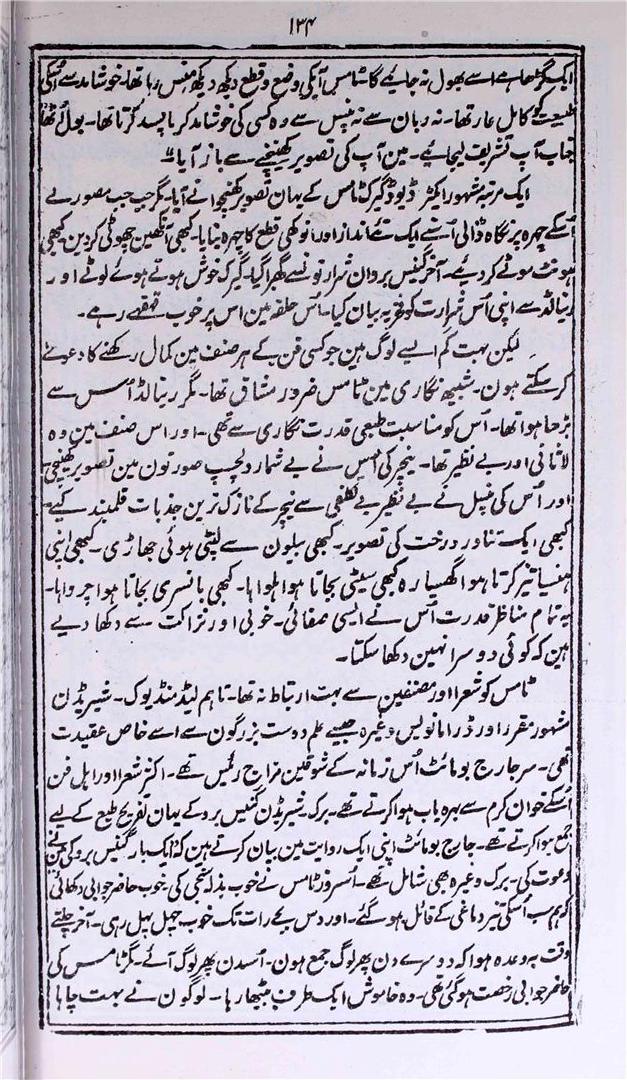 ۱۳۴
ایک گڑھا ہے اسے بھول نہ جائے گا ٹامس آپکی وضع و قطع دیکھ دیکھ ہنس رہا تھا۔ خوشامد سے اُسکی
طبیعت کو کامل عار تھا۔ نہ زبان سے نہ پنسل سے وہ کسی کی خوشامد کرنا پسند کرتا تھا۔ بول اُٹھا
جناب آپ تشریف لیجائیے۔ مین آپ کی تصویر کھینچنے سے باز آیا"
ایک مرتبہ مشہور ایکٹر ڈیوڈ گیرک ٹامس کے یہان تصویر کھنچوانے آیا۔ مگر جب جب مصور نے
اُسکے چہرہ پر نگاہ ڈالی اُسنے ایک نئے انداز اور انوکھی قطع کا چہرہ بنایا۔ کبھی آنکھین چھوٹی کردین۔ کبھی
ہونٹ موٹے کردیے۔ آخر گینس برو ان شرارتونسے گھبرا گیا۔ گیرک خوش ہوتے ہوئے لوٹے اور
رینالڈ سے اپنی اُس شرارت کو فخریہ بیان کیا۔ اُس حلقہ مین اس پر خوب قہقہے رہے۔
لیکن بہت کم ایسے لوگ ہین جو کسی فن کے ہر صنف مین کمال رکھنے کا دعوے
کر سکتے ہون۔ شبیہ نگاری مین ٹامس ضرور مشاق تھا۔ مگر رینالڈ اُمس سے
بڑھا ہوا تھا۔ اُس کو مناسبت طبعی قدرت نگاری سے تھی۔ اور اس صنف مین وہ
لاثانی اور بے نظیر تھا۔ نیچر کی اُس نے بے شمار دلچسپ صورتون مین تصویر کھینچی
اور اُس کی پنسل نے بے نظیر بے تکلفی سے نیچر کے نازک ترین جذبات قلمبند کیے۔
کبھی ایک تناور درخت کی تصویر۔ کبھی بیلون سے لپٹی ہوئی جھاڑی۔ کبھی اپنی
ہنسیا تیز کرتا ہوا گھسیارہ کبھی سیٹی بجاتا ہوا ہلواہا۔ کبھی بانسری بجاتا ہوا چرواہا۔
یہ تمام مناظر قدرت اُس نے ایسی صفائی۔ خوبی اور نزاکت سے دکھا دیے
ہین کہ کوئی دوسرا نہین دکھا سکتا۔
ٹامس کو شعرا اور مصنفین سے بہت ارتباط نہ تھا۔ تاہم لیڈمنڈ یوک۔ شیریڈن
مشہور مقرر اور ڈراما نویس وغیرہ جیسے علم دوست بزرگون سے اسے خاص عقیدت
تھی۔ سر جارج بومانٹ اُس زمانہ کے شوقین مزاج رئیس تھے۔ اکثر شعرا اور اہل فن
اُسکے خوان کرم سے بہرہ یاب ہوا کرتے تھے۔ برک۔ شیریڈن گینس برو کے یہان تفریح طبع کے لیے
جمع ہوا کرتے تھے۔ جارج بومانٹ اپنی ایک روایت مین بیان کرتے ہین کہ ایک بار گینس برو کی مین نے
دعوت کی۔ برک وغیرہ بھی شامل تھے۔ اُسروز ٹامس نے خوب بذلہ سنجی کی۔ خوب حاضر جوابی دکھائی
کہ ہم سب اُسکی تیز دماغی کے قائل ہو گئے۔ اور دس بجے رات تک خوب چہل پہل رہی۔ آخر چلتے
وقت یہ وعدہ ہوا کہ دوسرے دن پھر لوگ جمع ہون۔ اُسدن پھر لوگ آئے۔ مگر ٹامس کی
حاضر جوابی رخصت ہو گئی تھی۔ وہ خاموش ایک طرف بیٹھا رہا۔ لوگون نے بہت چاہا